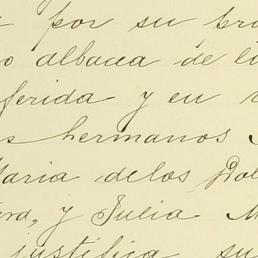 por su
albacea de
y en
hermanos
Maria delos Dol
y Julia M
justifica su